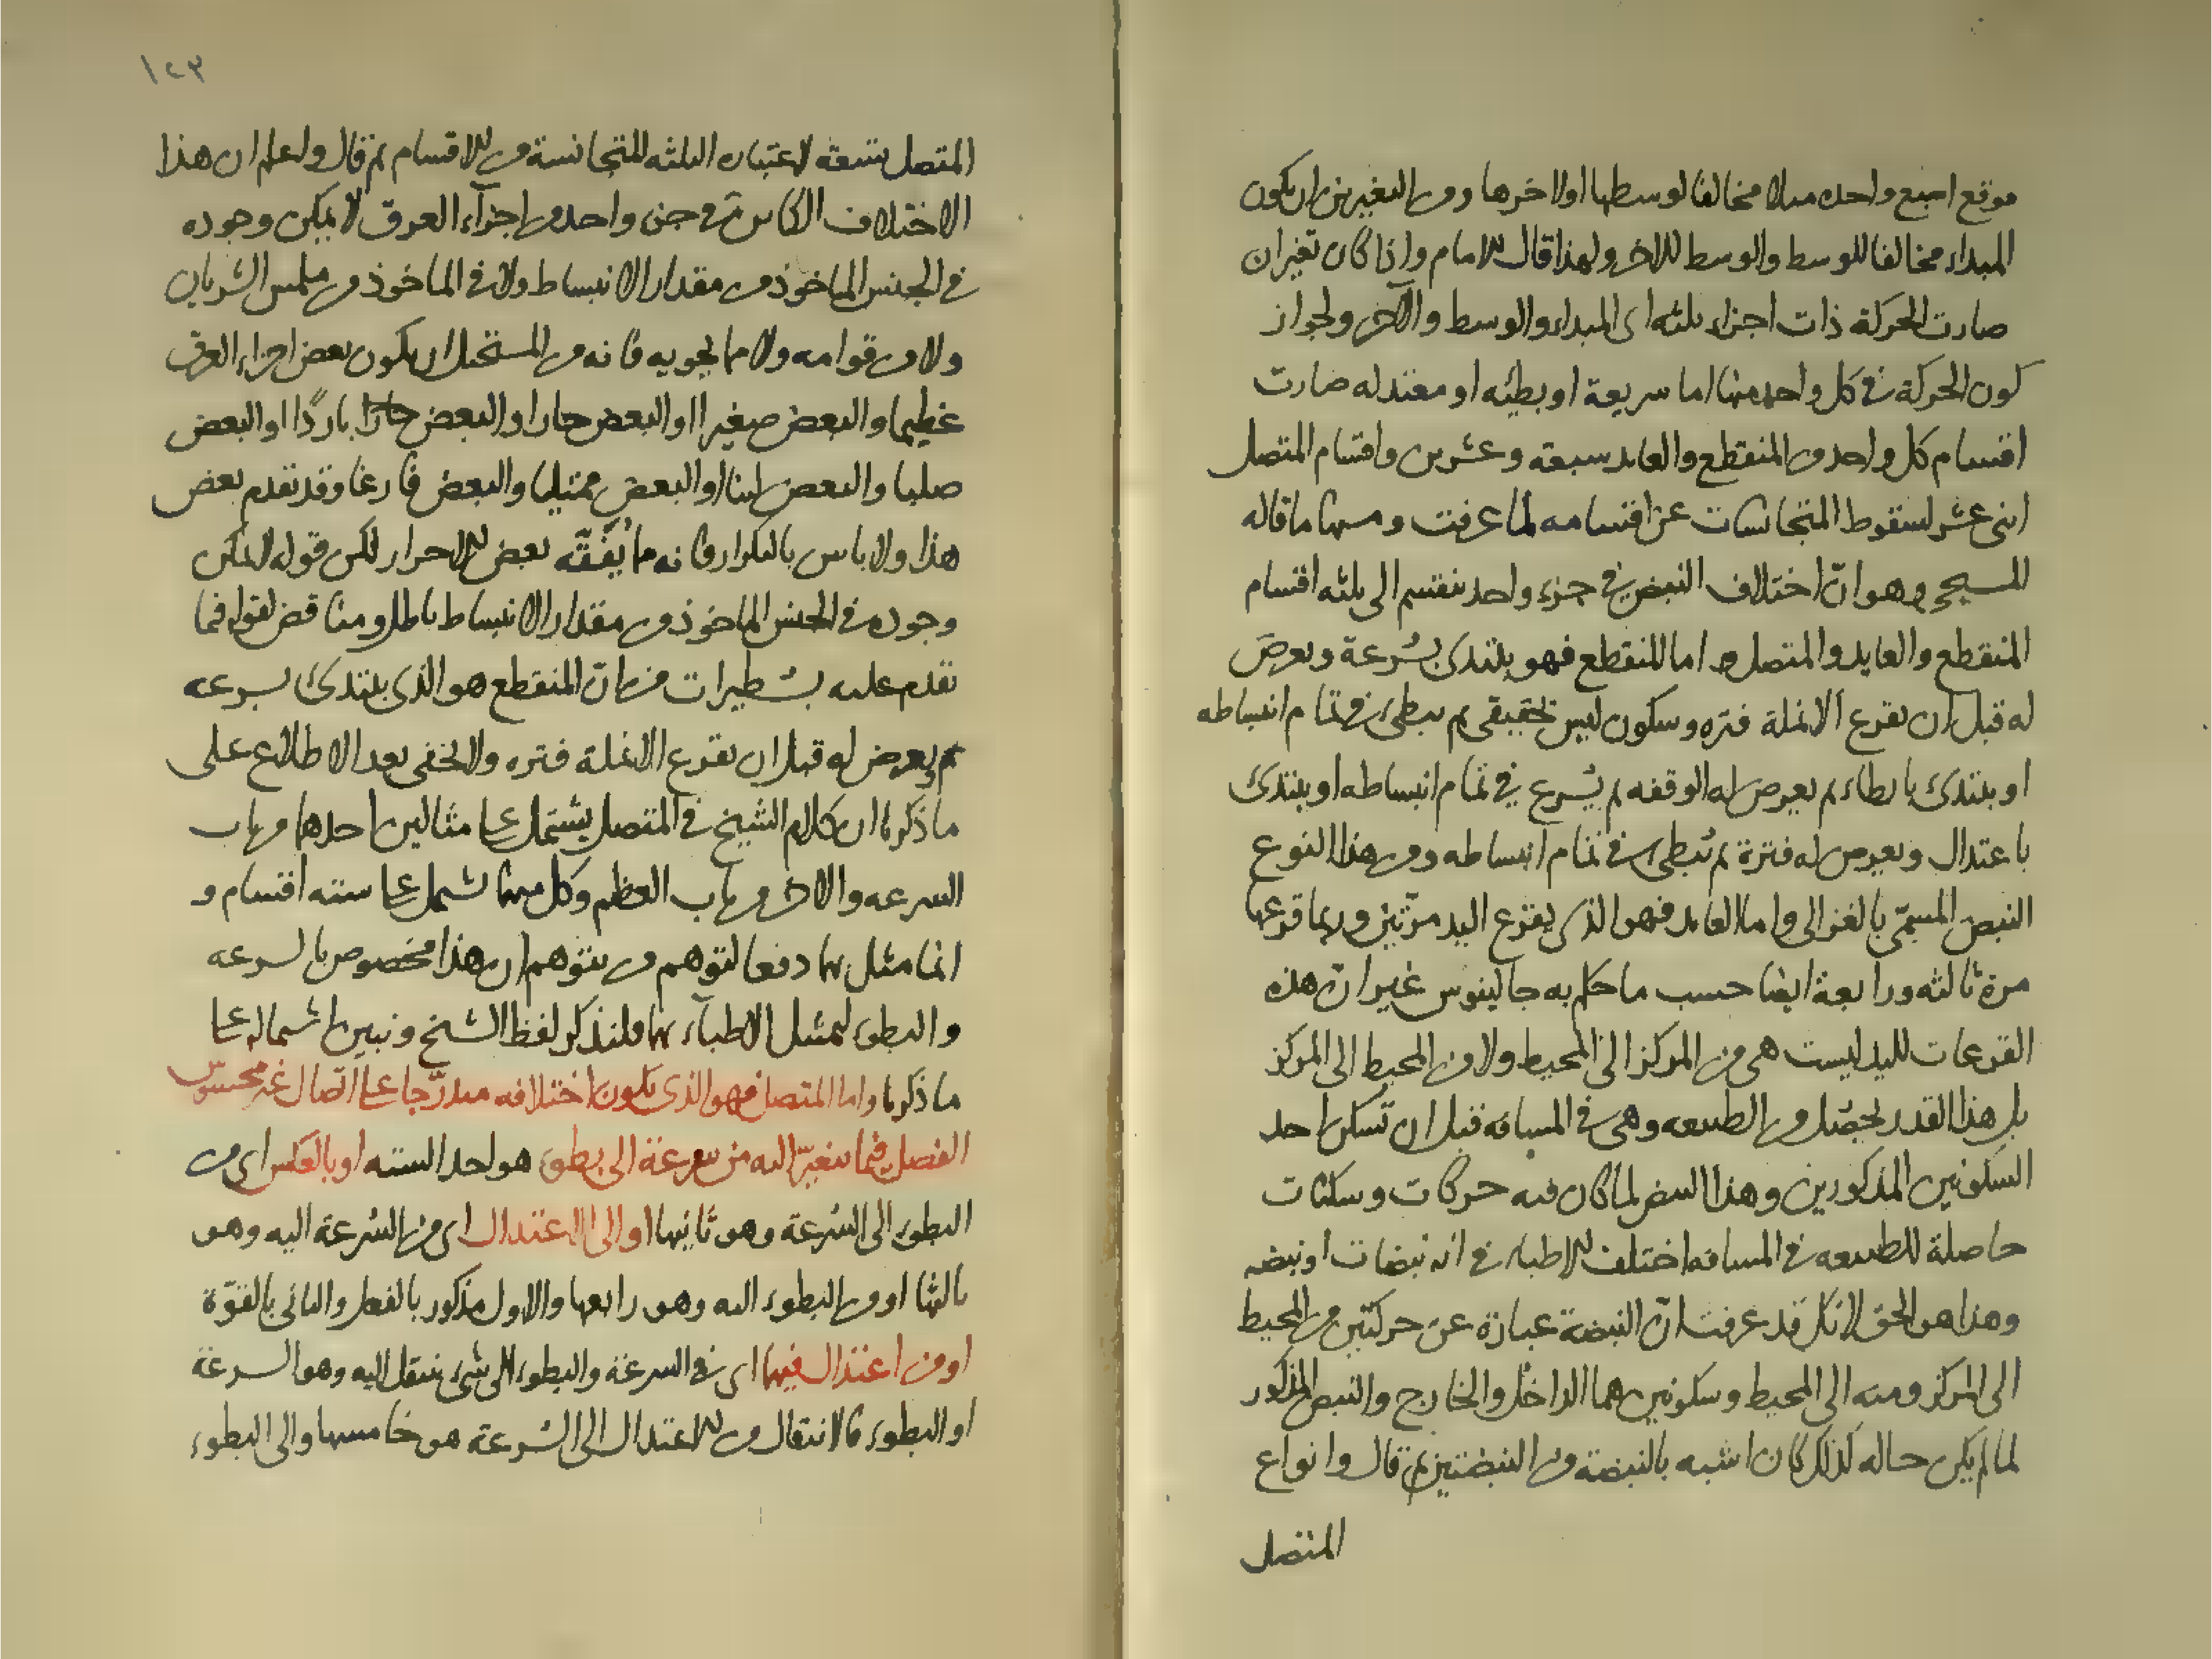 موقع اصبع واحده مثلا مخالفا لوسطها او لاخرها ومن التغيرين ان يكون
المبداء مخالفا للوسط والوسط للاخر ولهذا قال الامام واذا كان تغيران
صارت الحركة ذات اجزاء ثلثه اى المبداء والوسط والآخر ولجواز
كون الحركة فى كل واحد منها اما سريعة او بطيئه او معتدله صارت
اقسام كل واحد من المنقطع والعايد سبعة وعشرين واقسام المتصل
اثنى عشر لسقوط المتجانسات عن اقسامه لما عرفت ومنها ما قاله
المسيحى وهو انّ اختلاف النبض فى جزء واحد ينقسم الى ثلثه اقسام
المنقطع والعايد والمتصل اما المنقطع فهو يبتدئ بسُرعة ويعرض
له قبل ان يقرع الانملة فتره وسكون ليس بحقيقى ثم يبطئ فى تمام انبساطه
او يبتدئ بابطاء ثم يعرض له الوقفه ثم يُسرع فى تمام انبساطه او يبتدئ
باعتدال ويعرض له فترة ثم يُبطئ فى تمام انبساطه ومن هذا النوع
النبض المسمّى بالغزالى واما العايد فهو الذى يقرع اليد مرّتين وربما قرعها
مرة ثالثه ورابعة ايضا حسب ما حكم به جالينوس غير انّ هذه
القرعات لليد ليست هى من المركز الى المحيط ولا من المحيط الى المركز
بل هذا القدر يحصُل من الطبيعه وهى فى المسافه قبل ان تسكن احد
السكونين المذكورين وهذا النبض لما كان فيه حركات وسكنات
حاصلة للطبيعه فى المسافه اختلف الاطباء فى انه نبضات او نبضه
وهذا هو الحق لانك قد عرفت انّ النبضة عبارة عن حركتين من المحيط
الى المركز ومنه الى المحيط وسكونين هما الداخل والخارج والنبض المذكور
لما لم يكن حاله كذلك كان اشبه بالنبضة من النبضتين ثم قال وانواع
المتصل
١٢٣
المتصل بتسعة لاعتبار الثلثه المتجانسة من الاقسام ثم قال واعلم ان هذا
الاختلاف الكاين فى جزء واحد من اجزآء العرق لا يمكن وجوده
فى الجنس الماخوذ من مقدار الانبساط ولا فى الماخوذ من ملمس الشريان
ولا من قوامه ولا مما يحويه فانه من المستحيل ان يكون بعض اجزاء العرق
عظيما والبعض صغيرا او البعض حارا والبعض حارّا باردًا او البعض
صلبا والبعض لينا او البعض ممتليا والبعض فارغا وقد تقدم بعض
هذا ولا باس بالتكرار فانه مما يُفَقّه بعض الاحرار لكن قوله لا يمكن
وجوده فى الجنس الماخوذ من مقدار الانبساط باطل ومناقض لقوله فيما
تقدم عليه بسُطيرات من انّ المنقطع هو الذى يبتدئ بسرعه
ثم يعرض له قبل ان يقرع الانملة فتره ولا يخفى بعد الاطلاع على
ما ذكرنا ان كلام الشيخ فى المتصل يشتمل على مثالين احدهما من باب
السرعه والاخر من باب العظم وكل منهما يشتمل على سته اقسام و
انما مثل بهما دفعا لتوهم من يتوهم ان هذا مخصوص بالسرعه
والبطوء لتمثيل الاطبآء بهما ولنذكر لفظ الشيخ ونبين اشتماله على
ما ذكرنا واما المتصل فهو الذى يكون اختلافه متدرّجا على اتّصال غير محسوس
الفصل فيما يتغيّر اليه من سرعة الى بطوء هو احد السته او بالعكس اى من
البطوء الى السُرعة وهو ثانيها او الى الاعتدال اى من السُرعة اليه وهو
ثالثها او من البطوء اليه وهو رابعها والاول مذكور بالفعل والثانى بالقوّة
او من اعتدال فيهما اى فى السرعة والبطوء الى شئ ينتقل اليه وهو السرعة
او البطوء فالانتقال من الاعتدال الى السُرعة هو خامسها والى البطوء